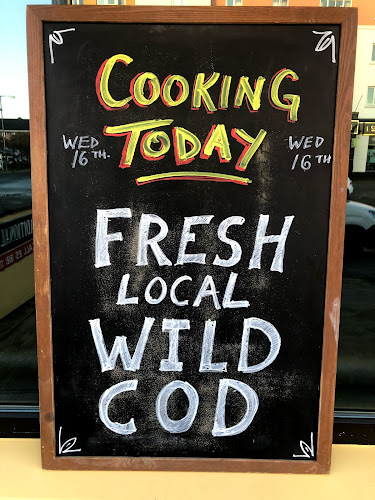 COOKING
TODAY
WED
16TH.
WED
16TH
FRESH
LOCAL
WILD
COD